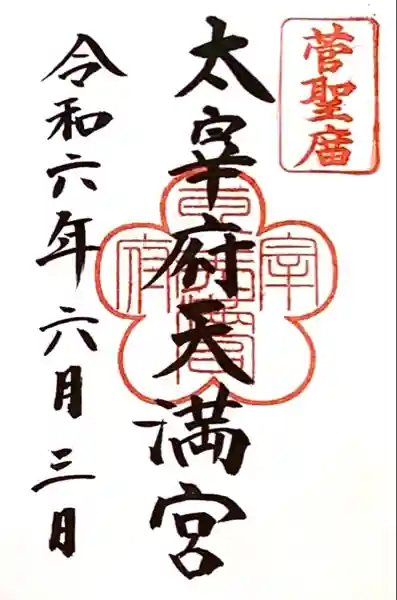 菅聖廟
太宰府天満宮
令和六年六月三日